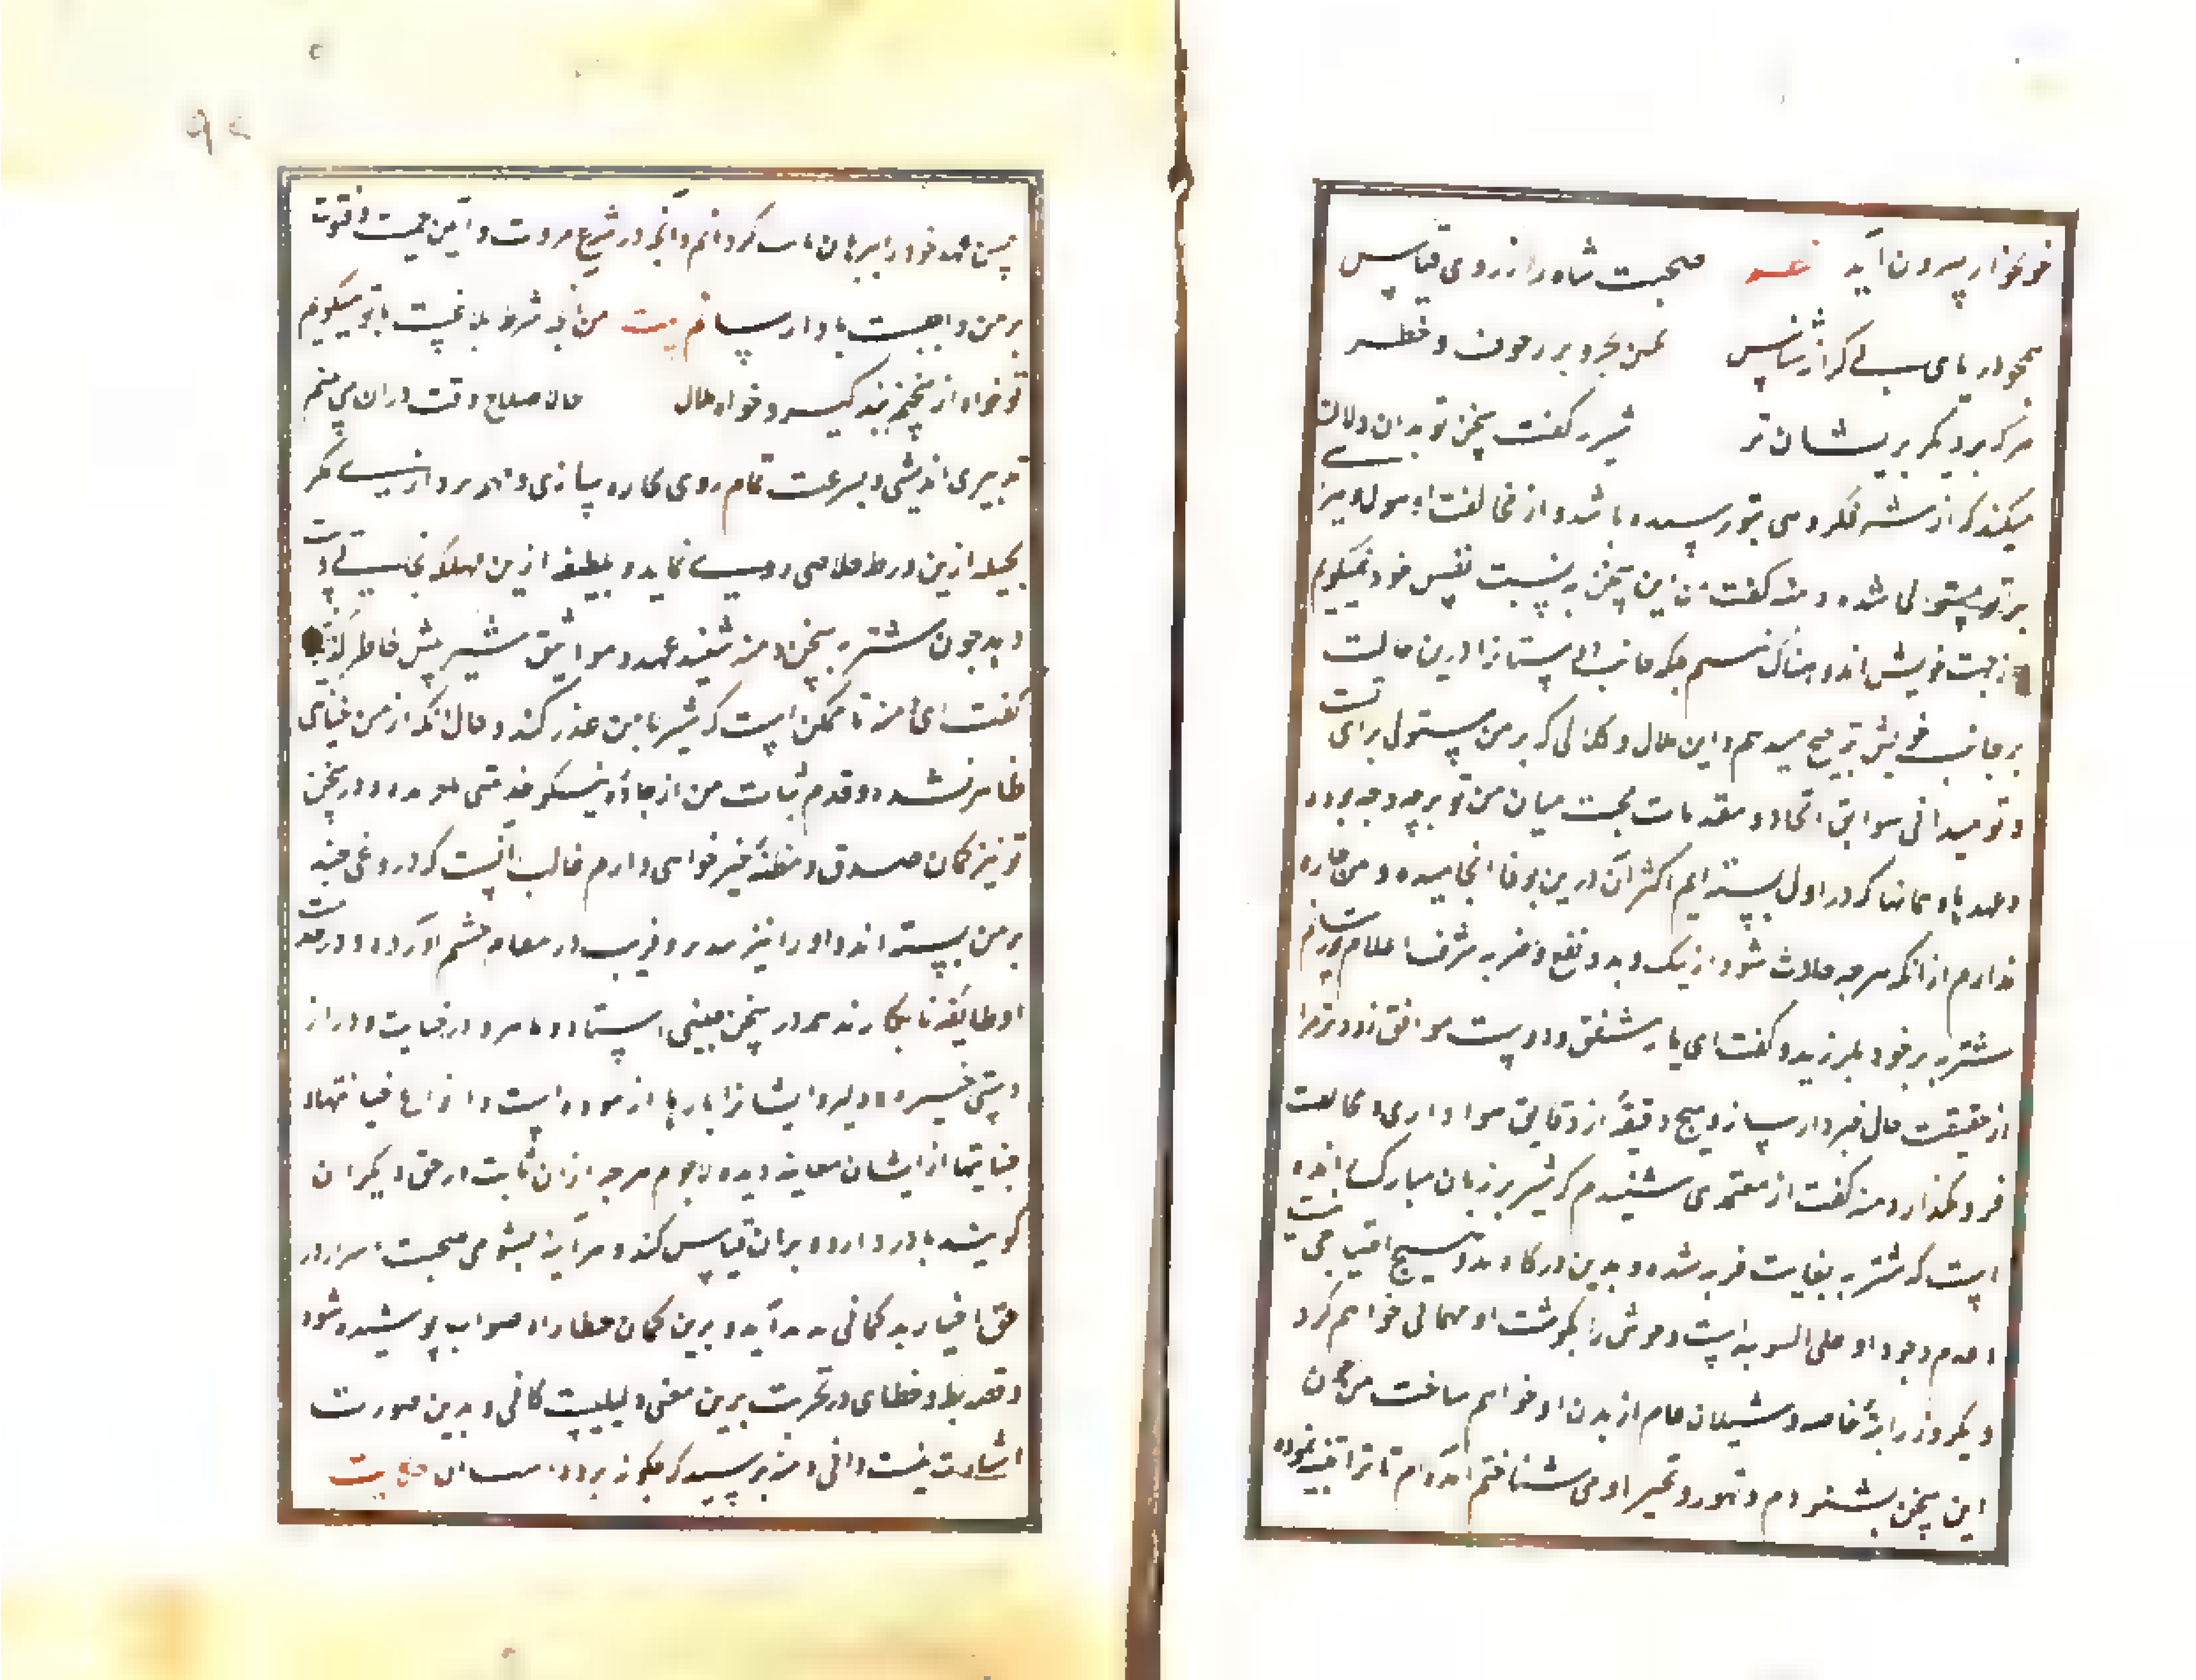 خونخوار بیرون آید شعر صحبت شاه را از روی قیاس
همچو دریای بی کران شناس ایمن بحر و بر رعون و خطر
هرکه نزدیکتر پریشان تر شنزبه گفت سخن تو بدان دلالت
میکند که از شیر مکروهی بتو رسیده باشد و از مخالفت او هول و هیبتی
بر تو مستولی شده دمنه گفت من این سخن به نسبت نفس خود نمیگویم
و از جهت خویش اندوهناک نیستم بلکه جانب دوستان را درین حالت
بر جانب خویش ترجیح میدهم و این ملال و کلالی که بر من مستولی برای تست
و تو میدانی سوابق اتحاد و مقدمات محبت میان من و تو برچه وجه بوده
و عهد با و پیمانها که در اول بسته ایم اکثر آن درین بوفا انجامیده و من چاره
ندارم از انکه هرچه حادث شود از نیک و بد و نفع و ضر به شرف اعلام تو رسانم
شنزبه برخود بلرزید و گفت ای یار مشفق و دوست موافق زودتر مرا
از حقیقت حال خبردار ساز و هیچ دقیقه از دقایق هواداری و مخالصت
فرو مگذار دمنه گفت از معتمدی شنیدم که شیر بر زبان مبارک رانده
است که شنزبه بغایت فربه شده و بدین درگاه بدو هیچ احتیاجی نیست
و عدم وجود او علی السویه است وحوش را بگوشت او مهمانی خواهم کرد
و یکروز راتبه خاصه و شیلان عام از بدن او خواهم ساخت من چون
این سخن بشنودم و تهور و تجبر او می شناختم آمده ام تا ترا آگاهی نموده
بحسن عهد خود را برهان ثابت گردانم و آنچه در شرع مروت و آیین حمیت و فتوت
بر من واجبست بادا رسانم بیت من آنچه شرط بلاغست با تو میگویم
تو خواه از سخنم پند گیر و خواه ملال حالا صلاح وقت دران می بینم
تدبیری اندیشی و بسرعت تمام روی بچاره سازی و مهم پردازی نهی مگر
بحیله ازین ورطه خلاصی روی نماید و بلطیفه ازین مهلکه نجاتی دست
دهد چون شنزبه سخن دمنه شنید عهود و مواثیق شیر پیش خاطر گذرانید
گفت ای دمنه ناممکن است که شیر با من غدر کند و حال آنکه از من خیانتی
ظاهر نشده و قدم ثبات من از جاده نیکو خدمتی نلغزیده و در سخن
تو نیز گمان صدق و مظنه خیرخواهی دارم غالب آنست که دروغی چند
بر من بسته اند و او را نیز بمکر و فریب در مقام خشم آورده و در خدمت
او طایفه نابکارند همه در سخن چینی استاد و ماهر و در خیانت و دراز
دستی خیره و دلیر و ایشانرا بارها آزموده است و انواع خیانتها و
جنایتها از ایشان معاینه دیده لاجرم هرچه ازان بابت در حق دیگران
گویند باور دارد و بران قیاس کند و هرآینه بشومی صحبت اشرار در
حق اخیار بدگمانی پدید آید و برین گمان خطا راه صواب پوشیده شود
و قصه بط و خطای در تجربت برین معنی دلیلیست کافی و بدین صورت
اشارت نیست وافی دمنه پرسید که چگونه بوده است آن حکایت